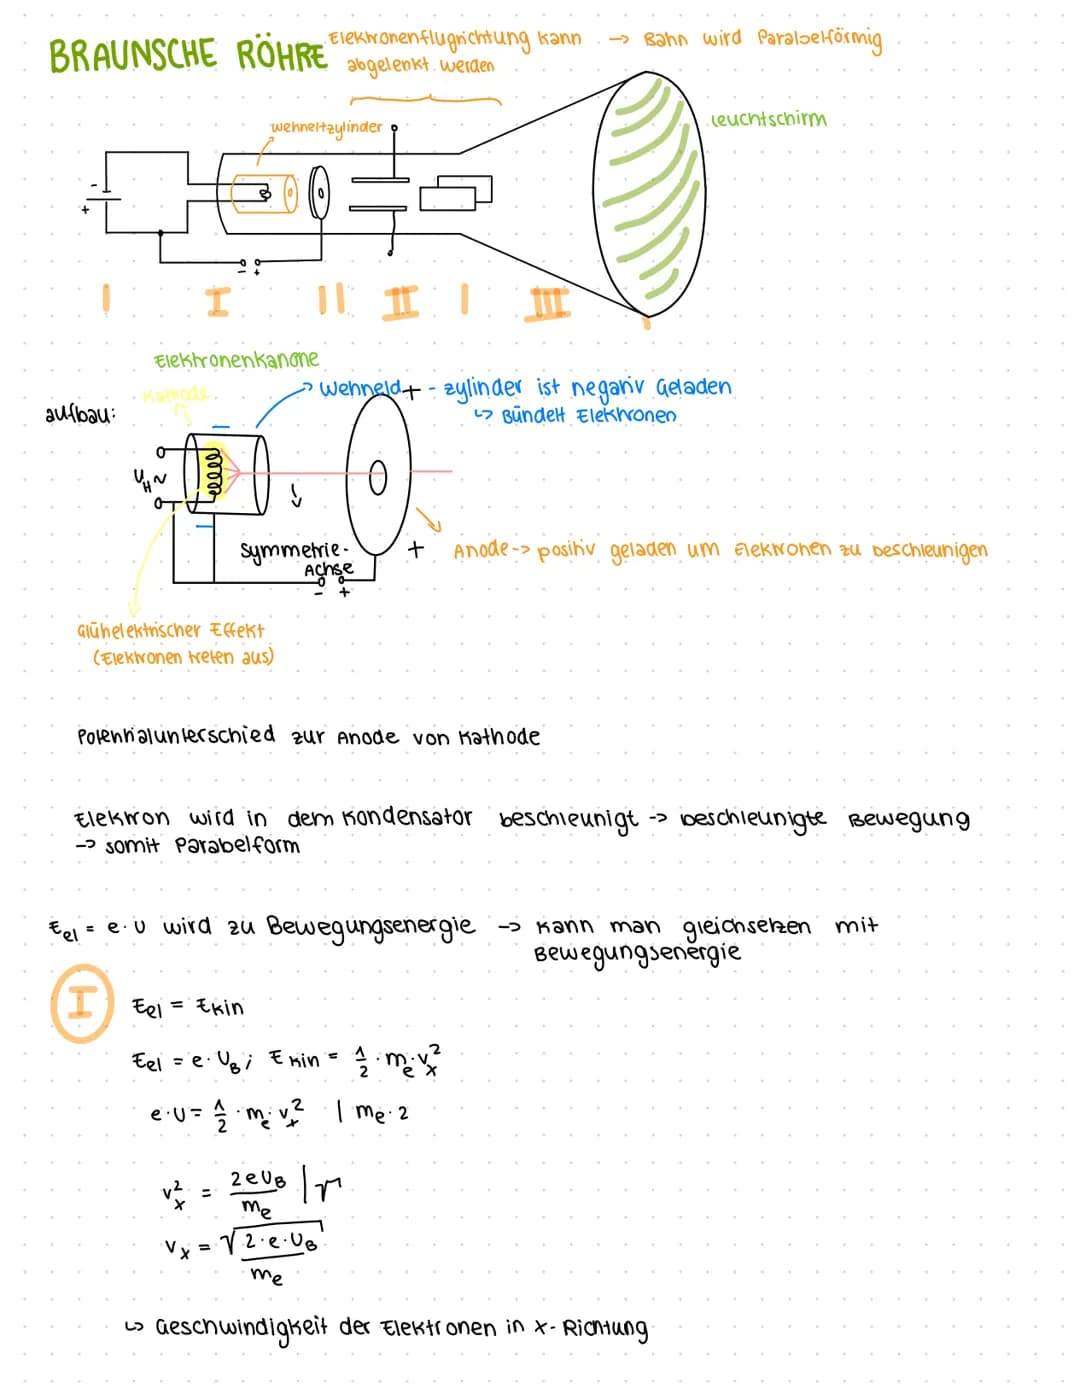 BRAUNSCHE RÖHRE
Elektronenflugrichtung kann → Bahn wird Parabelförmig
abgelenkt werden
Wehneltzylinder
Leuchtschirm
- +
- +
I I II II I III
Elektronenkanone
Kathode
→ Wehneld - zylinder ist negativ Geladen
↳ Bündelt Elektronen
aufbau:
+
U_H ~
Symmetrie-
Achse
- +
+ Anode -> positiv geladen um Elektronen zu beschleunigen
Glühelektrischer Effekt
(Elektronen treten aus)
Potentialunterschied zur Anode von Kathode
Elektron wird in dem Kondensator beschleunigt -> beschleunigte Bewegung
-> somit Parabelform
E_el = e · U wird zu Bewegungsenergie -> kann man gleichsetzen mit
Bewegungsenergie
I
E_el = E_kin
E_el = e · U_B ; E_kin = 1/2 · m_e · v_x^2
e · U = 1/2 · m_e · v_x^2 | m_e · 2
v_x^2 = 2eU_B / m_e | √
v_x = √2 · e · U_B / m_e
↳ Geschwindigkeit der Elektronen in x-Richtung